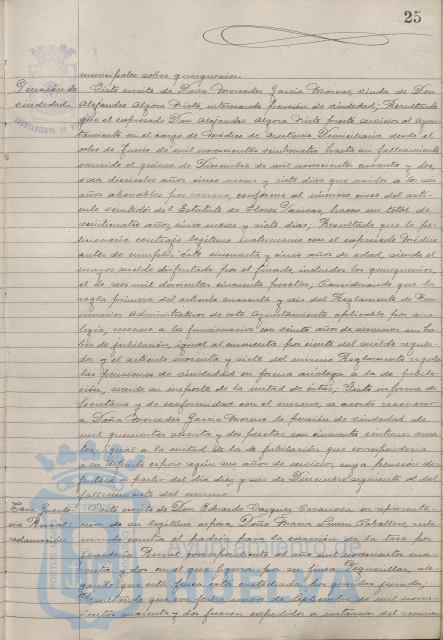 25
municipales sobre quinquenios.
Pensión de viudedad. Visto escrito de Doña Mercedes García Moreno, viuda de Don
Alejandro Algora Nieto, interesando pensión de viudedad; Resultando
que el expresado Don Alejandro Algora Nieto prestó servicio al Ayun-
tamiento en el cargo de Médico de Asistencia Domiciliaria desde el
ocho de Junio de mil novecientos veinticuatro hasta su fallecimiento
ocurrido el quince de Diciembre de mil novecientos cuarenta y dos,
o sea dieciocho años cinco meses y siete días que unidos a los seis
años abonables por carrera, conforme al número once del artí-
culo veintidós del Estatuto de Clases Pasivas, hacen un total de
veinticuatro años, cinco meses y siete días; Resultando que la pe-
ticionaria contrajo legítimo matrimonio con el expresado Médico
antes de cumplir éste cincuenta y cinco años de edad, siendo el
mayor sueldo disfrutado por el finado, incluidos los quinquenios,
el de seis mil doscientas cincuenta pesetas; Considerando que la
regla primera del artículo cuarenta y seis del Reglamento de Fun-
cionarios Administrativos de este Ayuntamiento aplicable por ana-
logía, reconoce a los funcionarios con veinte años de servicios un ha-
ber de jubilación igual al cincuenta por ciento del sueldo regula-
dor y el artículo cincuenta y siete del mismo Reglamento regula
las pensiones de viudedad en forma análoga a la de jubila-
ción, siendo su importe de la mitad de éstas; Visto informe de
Secretaría y de conformidad con el mismo, se acordó reconocer
a Doña Mercedes García Moreno la pensión de viudedad de
mil quinientas sesenta y dos pesetas con cincuenta céntimos anua-
les, igual a la mitad de la de jubilación que correspondería
a su difunto esposo según sus años de servicios, cuya pensión dis-
frutará a partir del día diez y seis de Diciembre siguiente al del
fallecimiento del mismo.
Tasa Guarde-
ría Rural:
reclamación Visto escrito de Don Eduardo Vazquez Casanova, en representa-
ción de su legítima esposa Doña María Luisa Caballero, recla-
mando contra el padrón para la exacción de la tasa por
Guardería Rural correspondiente al año mil novecientos cua-
renta y dos en el que figura por su finca Peguerillas, ale-
gando que esta finca está custodiada por guardas jurado;
Resultando que con fecha nueve de Septiembre de mil nove-
cientos cuarenta y dos fueron expedidos a instancia del recurren-